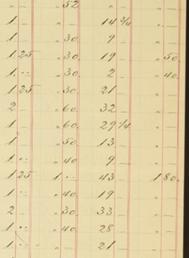 " 52
" — 14 3/4 —
1 — " 30. 9 —
1 25 " 30. 19 — " 50.
1 " " 30. 2 — " 40.
1 25 " 30. 21 —
2 — " 60. 32 —
1 — " 60. 29 1/4 —
1 — " 50. 13 —
1 " " 40. 9 —
1 25 1 " 43 — 1 80.
1 — " 40. 19 —
2 — " 30. 33 —
1 " " 40. 28 —
1 " — 21 —